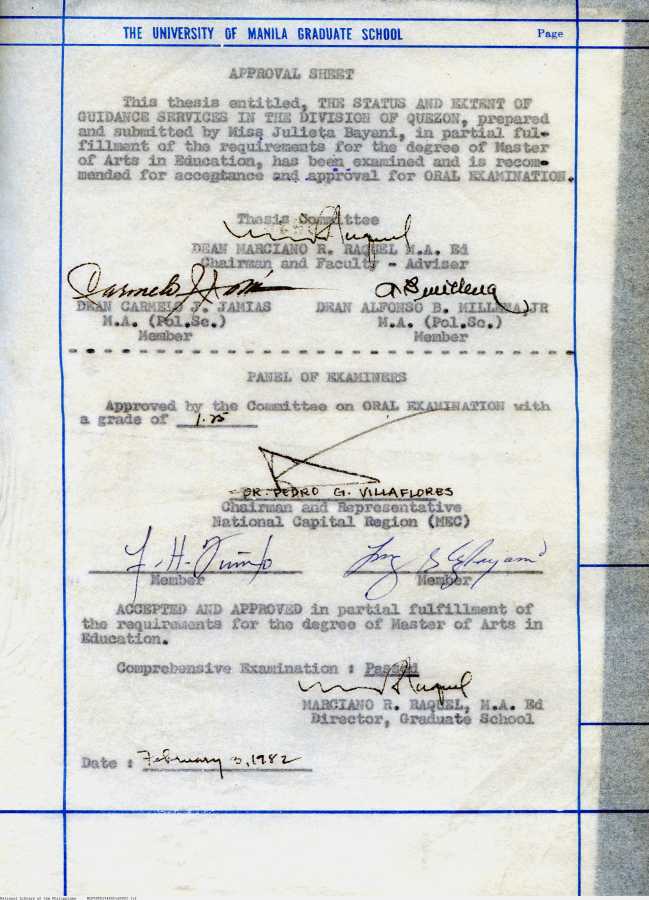 THE UNIVERSITY OF MANILA GRADUATE SCHOOL Page
APPROVAL SHEET
This thesis entitled, THE STATUS AND EXTENT OF
GUIDANCE SERVICES IN THE DIVISION OF QUEZON, prepared
and submitted by Miss Julieta Bayani, in partial ful-
fillment of the requirements for the degree of Master
of Arts in Education, has been examined and is recom-
mended for acceptance and approval for ORAL EXAMINATION.
Thesis Committee
DEAN MARCIANO R. RAQUEL M.A. Ed
Chairman and Faculty - Adviser
DEAN CARMELO J. JAMIAS DEAN ALFONSO B. MILLENA, JR
M.A. (Pol.Sc.) M.A. (Pol.Sc.)
Member Member
PANEL OF EXAMINERS
Approved by the Committee on ORAL EXAMINATION with
a grade of 1.25
DR. PEDRO G. VILLAFLORES
Chairman and Representative
National Capital Region (MEC)
Member Member
ACCEPTED AND APPROVED in partial fulfillment of
the requirements for the degree of Master of Arts in
Education.
Comprehensive Examination : Passed
MARCIANO R. RAQUEL, M.A. Ed
Director, Graduate School
Date : February 3, 1982
National Library of the Philippines